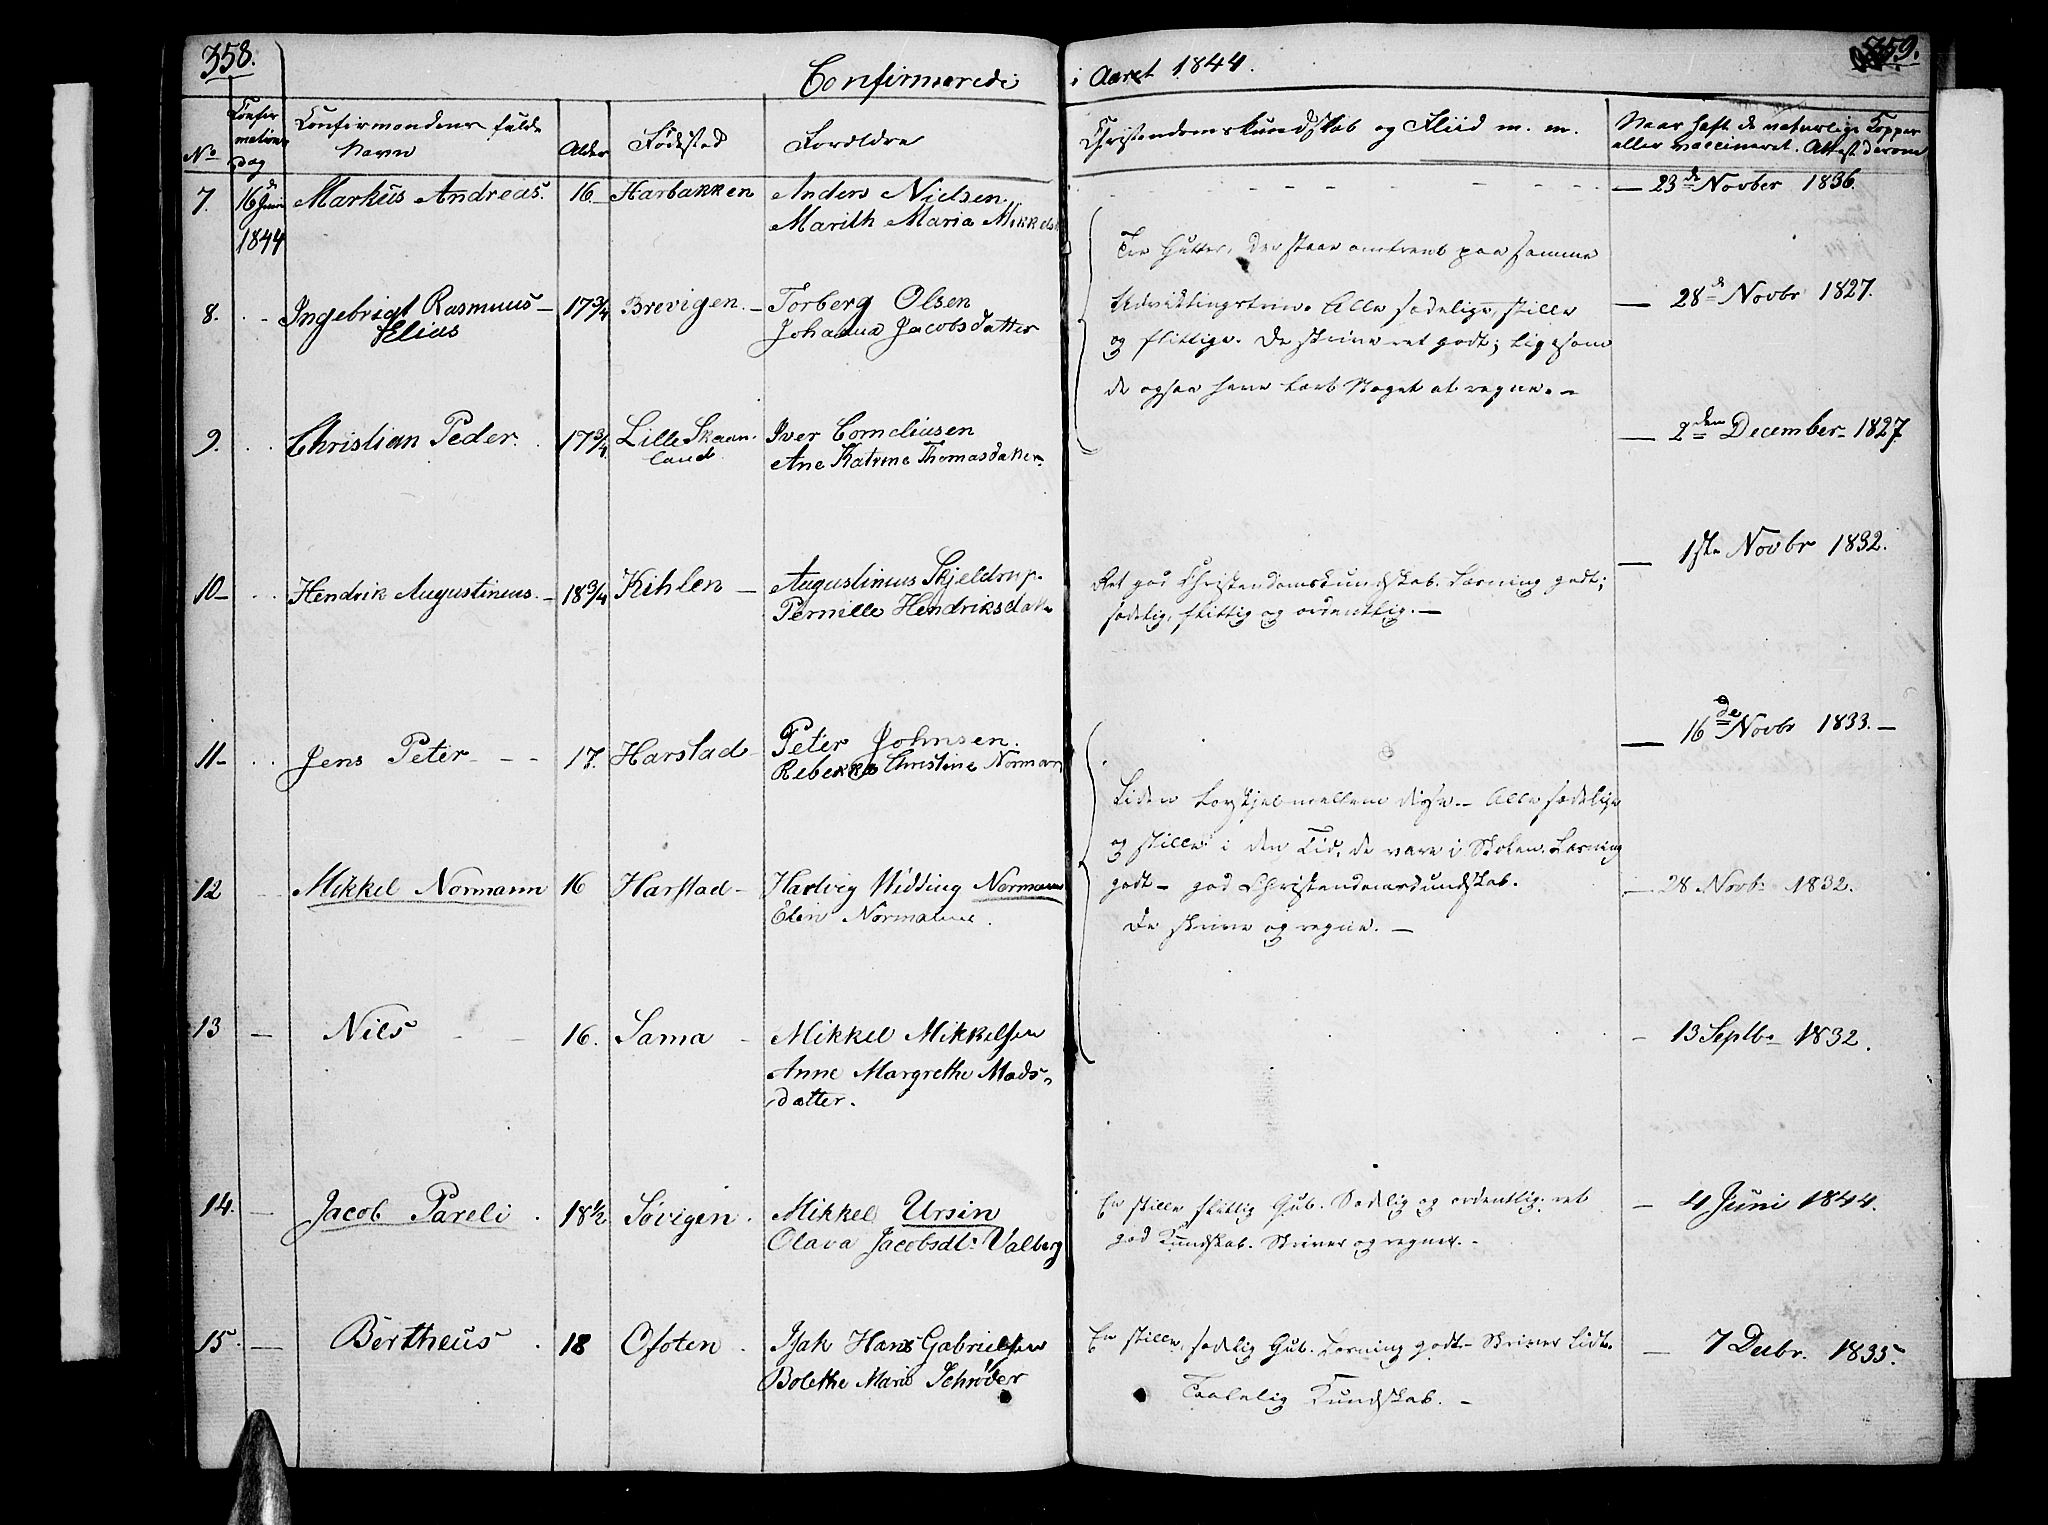 358.
Confirmerede
Confirmations Dag
No
Confirmandens fulde Navn
Alder
Fødested
Forældre
7. 16 Juni 1844 Markus Andreas. 16 Harbakken Anders Nielsen.
Marith Maria Mikkels
8. Ingebrigt Rasmuus 17 3/4 Brevigen. Torberg Olsen
Elias Johanna Jacobsdatter
9. Christian Peder. 17 3/4 Lille Skaan- Iver Corneliusen
land Ane Katrine Thomasdatter
10 Hendrik Augustinus. 18 3/4 Kihlen Augustinius Skjeldrup.
Pernille Hendriksdatr
11 Jens Peter 17. Harstad Peter Johnsen.
Rebekka Christine Normann
12 Mikkel Normann 16 Harstad Hartvig Widding Normann
Elen Normann.
13 Nils 16. Sama Mikkel Mikkelsen
Anne Margrethe Mads-
datter.
14. Jacob Pareli. 18 1/2 Sørvigen. Mikkel Ursin
Olava Jacobsdt: Valberg
15. Bertheus. 18 Ofoten. Isak Hans Gabrielsen
Bolethe Marie Schrøder
359.
i Aaret 1844.
Christendomskundskab og Fliid m. m.
Naar haft de naturlige Kopper
eller vaccineret. Attest derom
23de Novber 1836.
Tre Gutter, der staae omtrent paa samme
Udviklingstrin. Alle sædelige, stille
28de Novbr 1827.
og flittige. De skrive ret godt; ligesom
de ogsaa have lært Noget at regne.
2den December 1827
1ste Novbr 1832.
Ret god Christendomskundskab. Læsning godt;
sædelig, flittig og ordentlig.
16de Novbr 1833.
Liden Forskjel mellem disse. Alle sædelige
og stille i den Tid, de vare i Skolen. Læsning
godt god Christendomskundskab.
28 Novbr 1832.
De skrive og regne.
13 Septbr 1832.
En stille flittig Gut. Sædelig og ordentlig. ret
god Kundskab. Skriver og regner.
4 Juni 1844.
En stille, sædelig Gut. Læsning godt Skriver lidt.
Taalelig Kundskab.
7 Decbr. 1835.